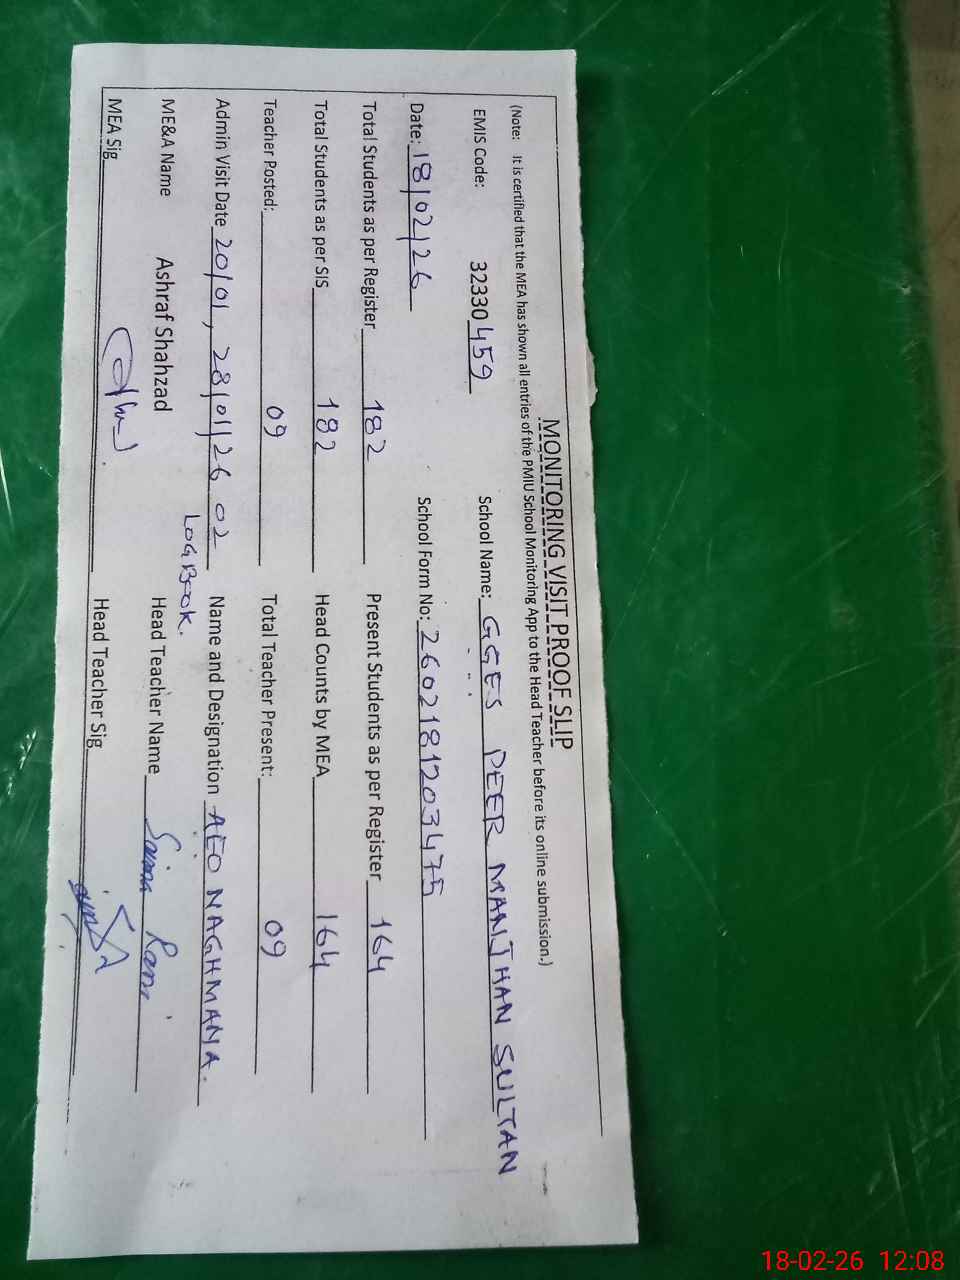 MONITORING VISIT PROOF SLIP
(Note: It is certified that the MEA has shown all entries of the PMIU School Monitoring App to the Head Teacher before its online submission.)
EMIS Code: 32330459 School Name: GGES PEER MANJHAN SULTAN
Date: 18/02/26 School Form No: 2602181203475
Total Students as per Register 182 Present Students as per Register 164
Total Students as per SIS 182 Head Counts by MEA 164
Teacher Posted: 09 Total Teacher Present: 09
Admin Visit Date 20/01, 28/01/26 02 Name and Designation AEO NAGHMANA.
LOGBOOK.
ME&A Name Ashraf Shahzad Head Teacher Name Saima Rani
MEA Sig Head Teacher Sig
18-02-26 12:08